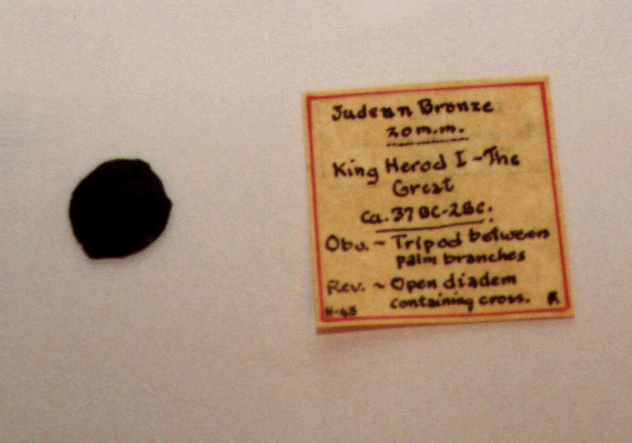 Judean Bronze
20 m.m.
King Herod I ~ The
Great
ca. 37 BC-2 BC.
Obv. ~ Tripod between
palm branches
Rev. ~ Open diadem
containing cross. F.
H-43